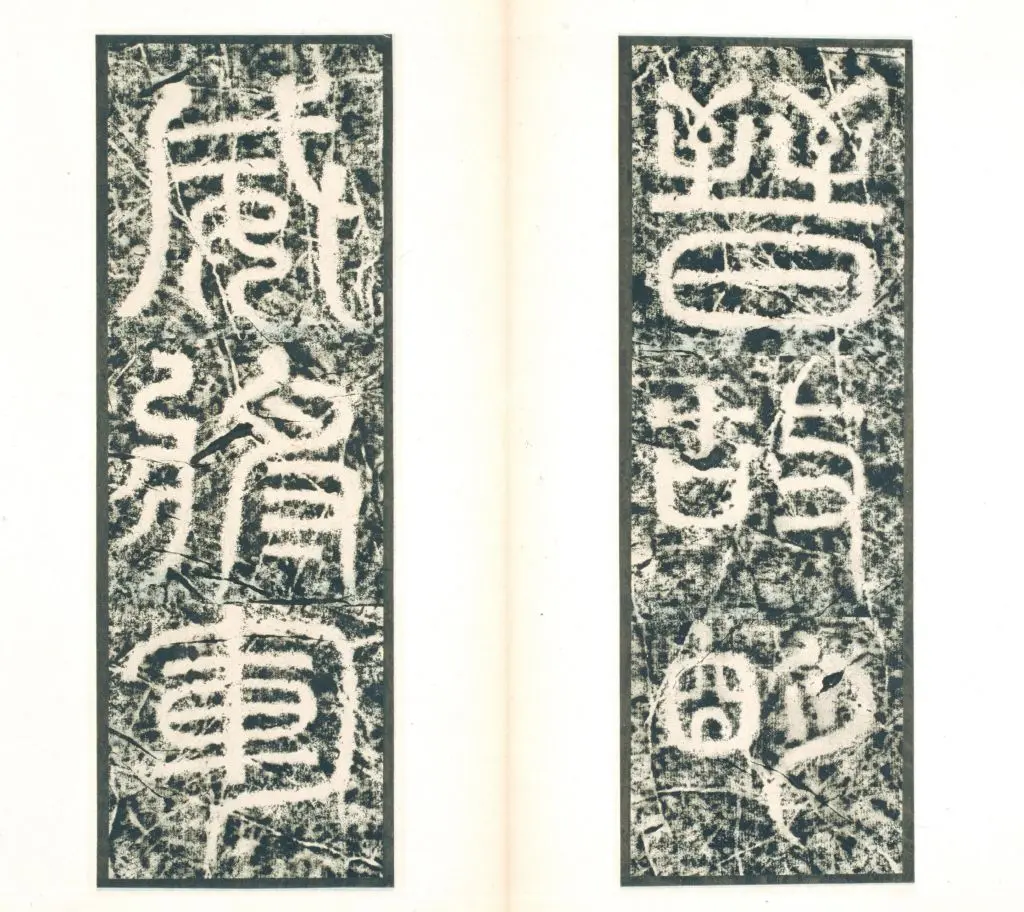 晉故明
威將軍